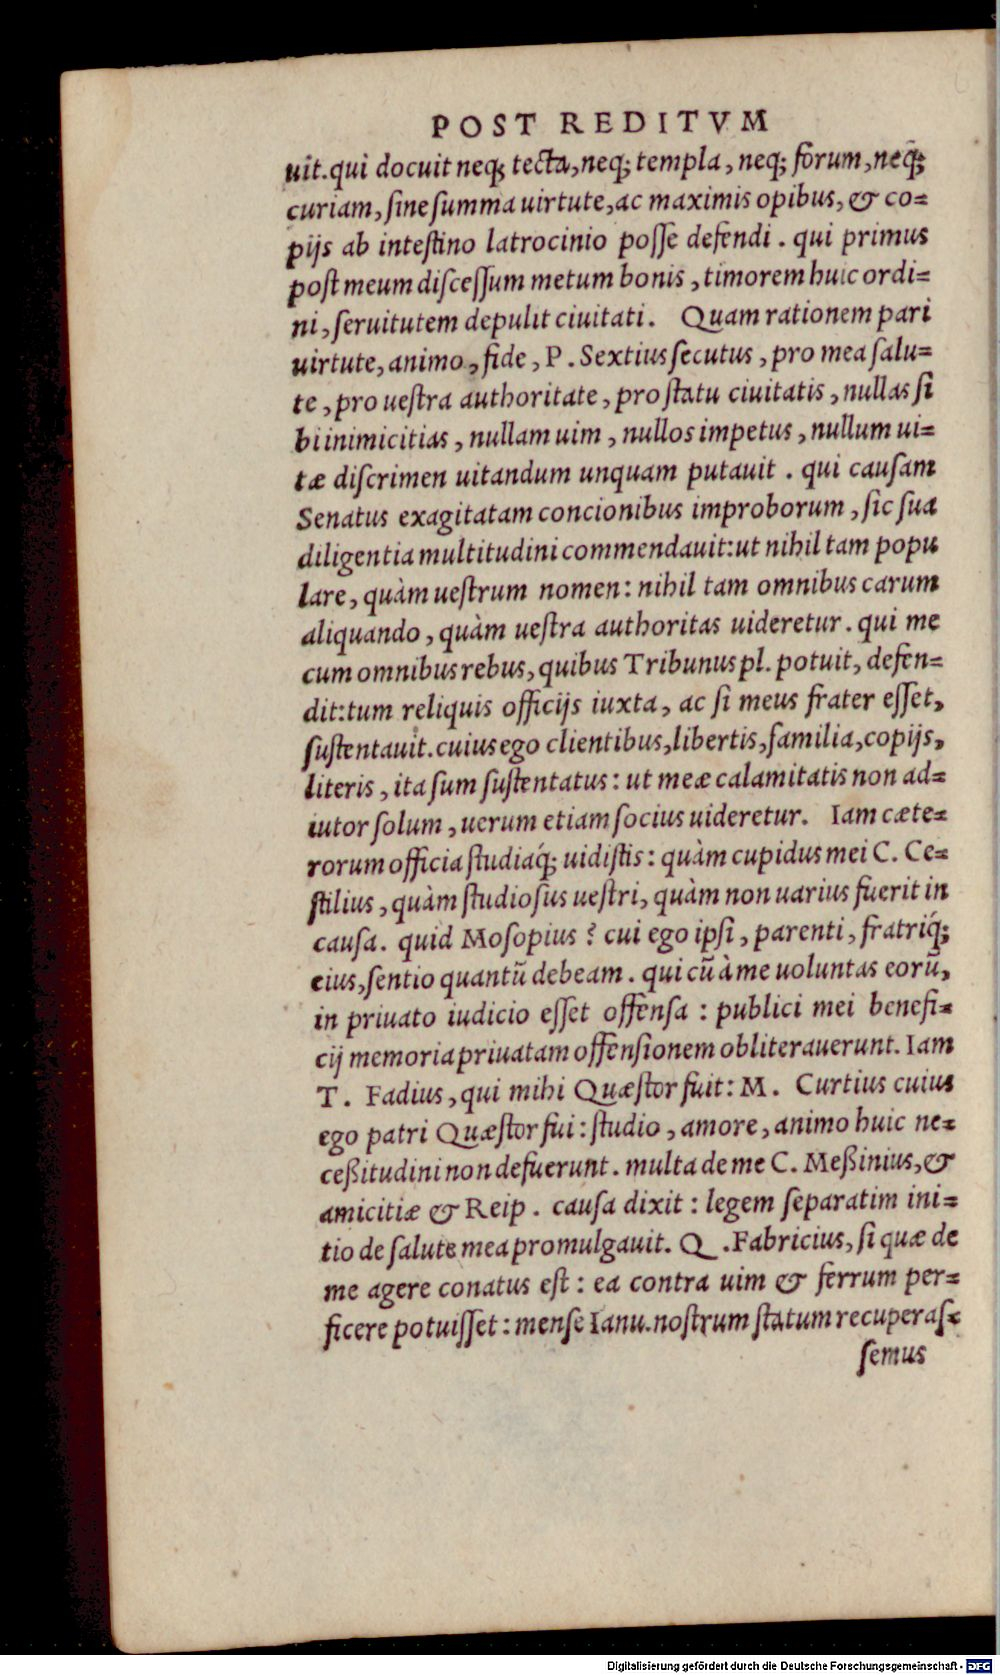 POST REDITVM
uit. qui docuit neq; tecta, neq; templa, neq; forum, neq́;
curiam, ſine ſumma uirtute, ac maximis opibus, & co=
pijs ab inteſtino latrocinio poſſe defendi. qui primus
poſt meum diſceſſum metum bonis, timorem huic ordi=
ni, ſeruitutem depulit ciuitati. Quam rationem pari
uirtute, animo, fide, P. Sextius ſecutus, pro mea ſalu=
te, pro ueſtra authoritate, pro ſtatu ciuitatis, nullas ſi
bi inimicitias, nullam uim, nullos impetus, nullum ui=
tæ diſcrimen uitandum unquam putauit. qui cauſam
Senatus exagitatam concionibus improborum, ſic ſua
diligentia multitudini commendauit: ut nihil tam popu
lare, quàm ueſtrum nomen: nihil tam omnibus carum
aliquando, quàm ueſtra authoritas uideretur. qui me
cum omnibus rebus, quibus Tribunus pl. potuit, defen=
dit: tum reliquis officijs iuxta, ac ſi meus frater eſſet,
ſuſtentauit. cuius ego clientibus, libertis, familia, copijs,
literis, ita ſum ſuſtentatus: ut meæ calamitatis non ad=
iutor ſolum, uerum etiam ſocius uideretur. Iam cæte=
rorum officia ſtudiaq́; uidiſtis: quàm cupidus mei C. Ce=
ſtilius, quàm ſtudioſus ueſtri, quàm non uarius fuerit in
cauſa. quid Moſopius? cui ego ipſi, parenti, fratriq́;
eius, ſentio quantũ debeam. qui cũ à me uoluntas eorũ,
in priuato iudicio eſſet offenſa: publici mei benefi=
cij memoria priuatam offenſionem obliterauerunt. Iam
T. Fadius, qui mihi Quæſtor fuit: M. Curtius cuius
ego patri Quæſtor fui: ſtudio, amore, animo huic ne=
ceßitudini non defuerunt. multa de me C. Meßinius, &
amicitiæ & Reip. cauſa dixit: legem ſeparatim ini=
tio de ſalute mea promulgauit. Q. Fabricius, ſi quæ de
me agere conatus eſt: ea contra uim & ferrum per=
ficere potuiſſet: menſe Ianu. noſtrum ſtatum recuperaſ=
ſemus
Digitalisierung gefördert durch die Deutsche Forschungsgemeinschaft - DFG